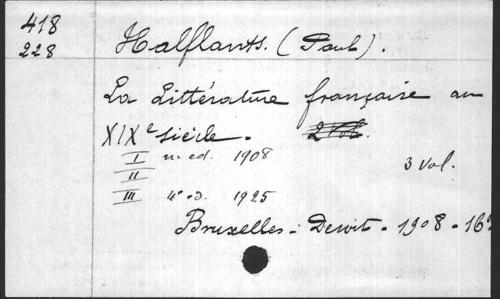 418
228
Halflants. (Paul).
La Littérature française au
XIXe siècle. 2 Vol.
I n. ed. 1908
3 vol.
II
III 4e ed. 1925
Bruxelles - Dewit - 1908 - 16